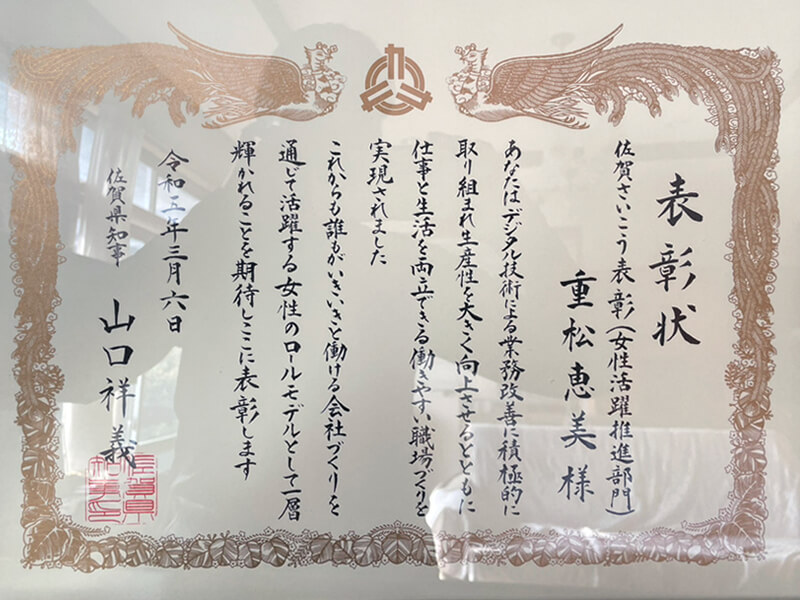 表彰状
佐賀さいこう表彰(女性活躍推進部門)
重松恵美様
あなたはデジタル技術による業務改善に積極的に
取り組まれ生産性を大きく向上させるとともに
仕事と生活を両立できる働きやすい職場づくりを
実現されました
これからも誰もがいきいきと働ける会社づくりを
通じて活躍する女性のロールモデルとして一層
輝かれることを期待しここに表彰します
令和五年三月六日
佐賀県知事
山口祥義